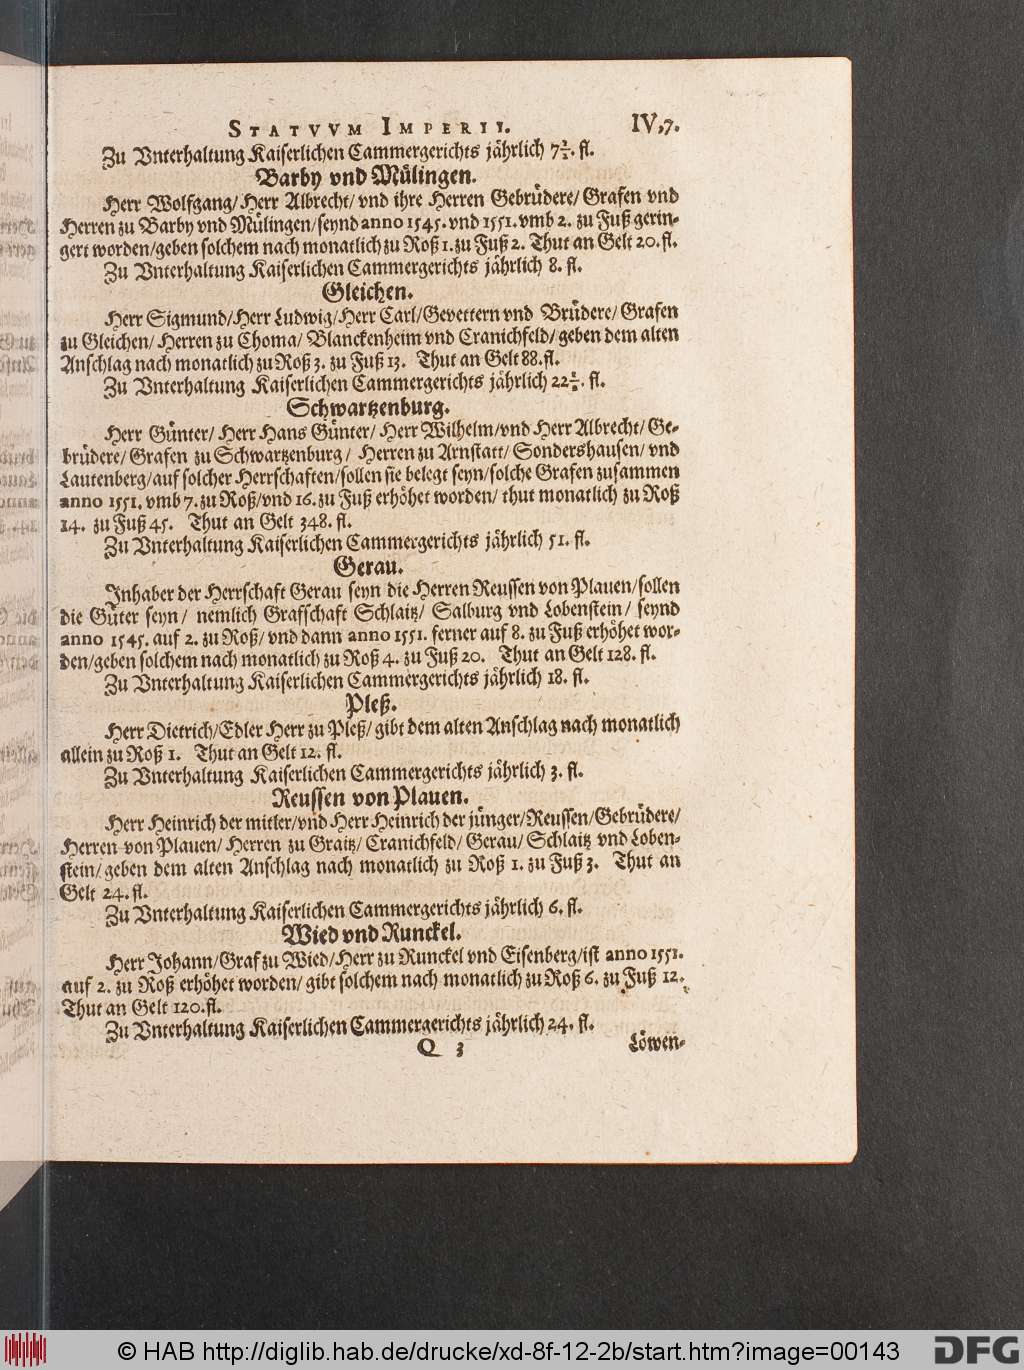 STATVVM IMPERII. IV,7.
Zu Vnterhaltung Kaiserlichen Cammergerichts jährlich 7½. fl.
Barby vnd Mülingen.
Herr Wolfgang/ Herr Albrecht/ vnd ihre Herren Gebrüdere/ Grafen vnd
Herren zu Barby vnd Mülingen/ seynd anno 1545. vnd 1551. vmb 2. zu Fuß gerin-
gert worden/ geben solchem nach monatlich zu Roß 1. zu Fuß 2. Thut an Gelt 20. fl.
Zu Vnterhaltung Kaiserlichen Cammergerichts jährlich 8. fl.
Gleichen.
Herr Sigmund/ Herr Ludwig/ Herr Carl/ Gevettern vnd Brüdere/ Grafen
zu Gleichen/ Herren zu Choma/ Blanckenheim vnd Cranichfeld/ geben dem alten
Anschlag nach monatlich zu Roß 3. zu Fuß 13. Thut an Gelt 88. fl.
Zu Vnterhaltung Kaiserlichen Cammergerichts jährlich 22½. fl.
Schwartzenburg.
Herr Günter/ Herr Hans Günter/ Herr Wilhelm/ vnd Herr Albrecht/ Ge-
brüdere/ Grafen zu Schwartzenburg/ Herren zu Arnstatt/ Sondershausen/ vnd
Lautenberg/ auf solcher Herrschaften/ sollen sie belegt seyn/ solche Grafen zusammen
anno 1551. vmb 7. zu Roß/ vnd 16. zu Fuß erhöhet worden/ thut monatlich zu Roß
14. zu Fuß 45. Thut an Gelt 348. fl.
Zu Vnterhaltung Kaiserlichen Cammergerichts jährlich 51. fl.
Gerau.
Inhaber der Herrschaft Gerau seyn die Herren Reussen von Plauen/ sollen
die Güter seyn/ nemlich Grafschaft Schlaitz/ Salburg vnd Lobenstein/ seynd
anno 1545. auf 2. zu Roß/ vnd dann anno 1551. ferner auf 8. zu Fuß erhöhet wor-
den/ geben solchem nach monatlich zu Roß 4. zu Fuß 20. Thut an Gelt 128. fl.
Zu Vnterhaltung Kaiserlichen Cammergerichts jährlich 18. fl.
Pleß.
Herr Dietrich/ Edler Herr zu Pleß/ gibt dem alten Anschlag nach monatlich
allein zu Roß 1. Thut an Gelt 12. fl.
Zu Vnterhaltung Kaiserlichen Cammergerichts jährlich 3. fl.
Reussen von Plauen.
Herr Heinrich der mitler/ vnd Herr Heinrich der jünger/ Reussen/ Gebrüdere/
Herren von Plauen/ Herren zu Graitz/ Cranichfeld/ Gerau/ Schlaitz vnd Loben-
stein/ geben dem alten Anschlag nach monatlich zu Roß 1. zu Fuß 3. Thut an
Gelt 24. fl.
Zu Vnterhaltung Kaiserlichen Cammergerichts jährlich 6. fl.
Wied vnd Runckel.
Herr Johann/ Graf zu Wied/ Herr zu Runckel vnd Eisenberg/ ist anno 1551.
auf 2. zu Roß erhöhet worden/ gibt solchem nach monatlich zu Roß 6. zu Fuß 12.
Thut an Gelt 120. fl.
Zu Vnterhaltung Kaiserlichen Cammergerichts jährlich 24. fl.
Q 3 Löwen-
© HAB http://diglib.hab.de/drucke/xd-8f-12-2b/start.htm?image=00143 DFG